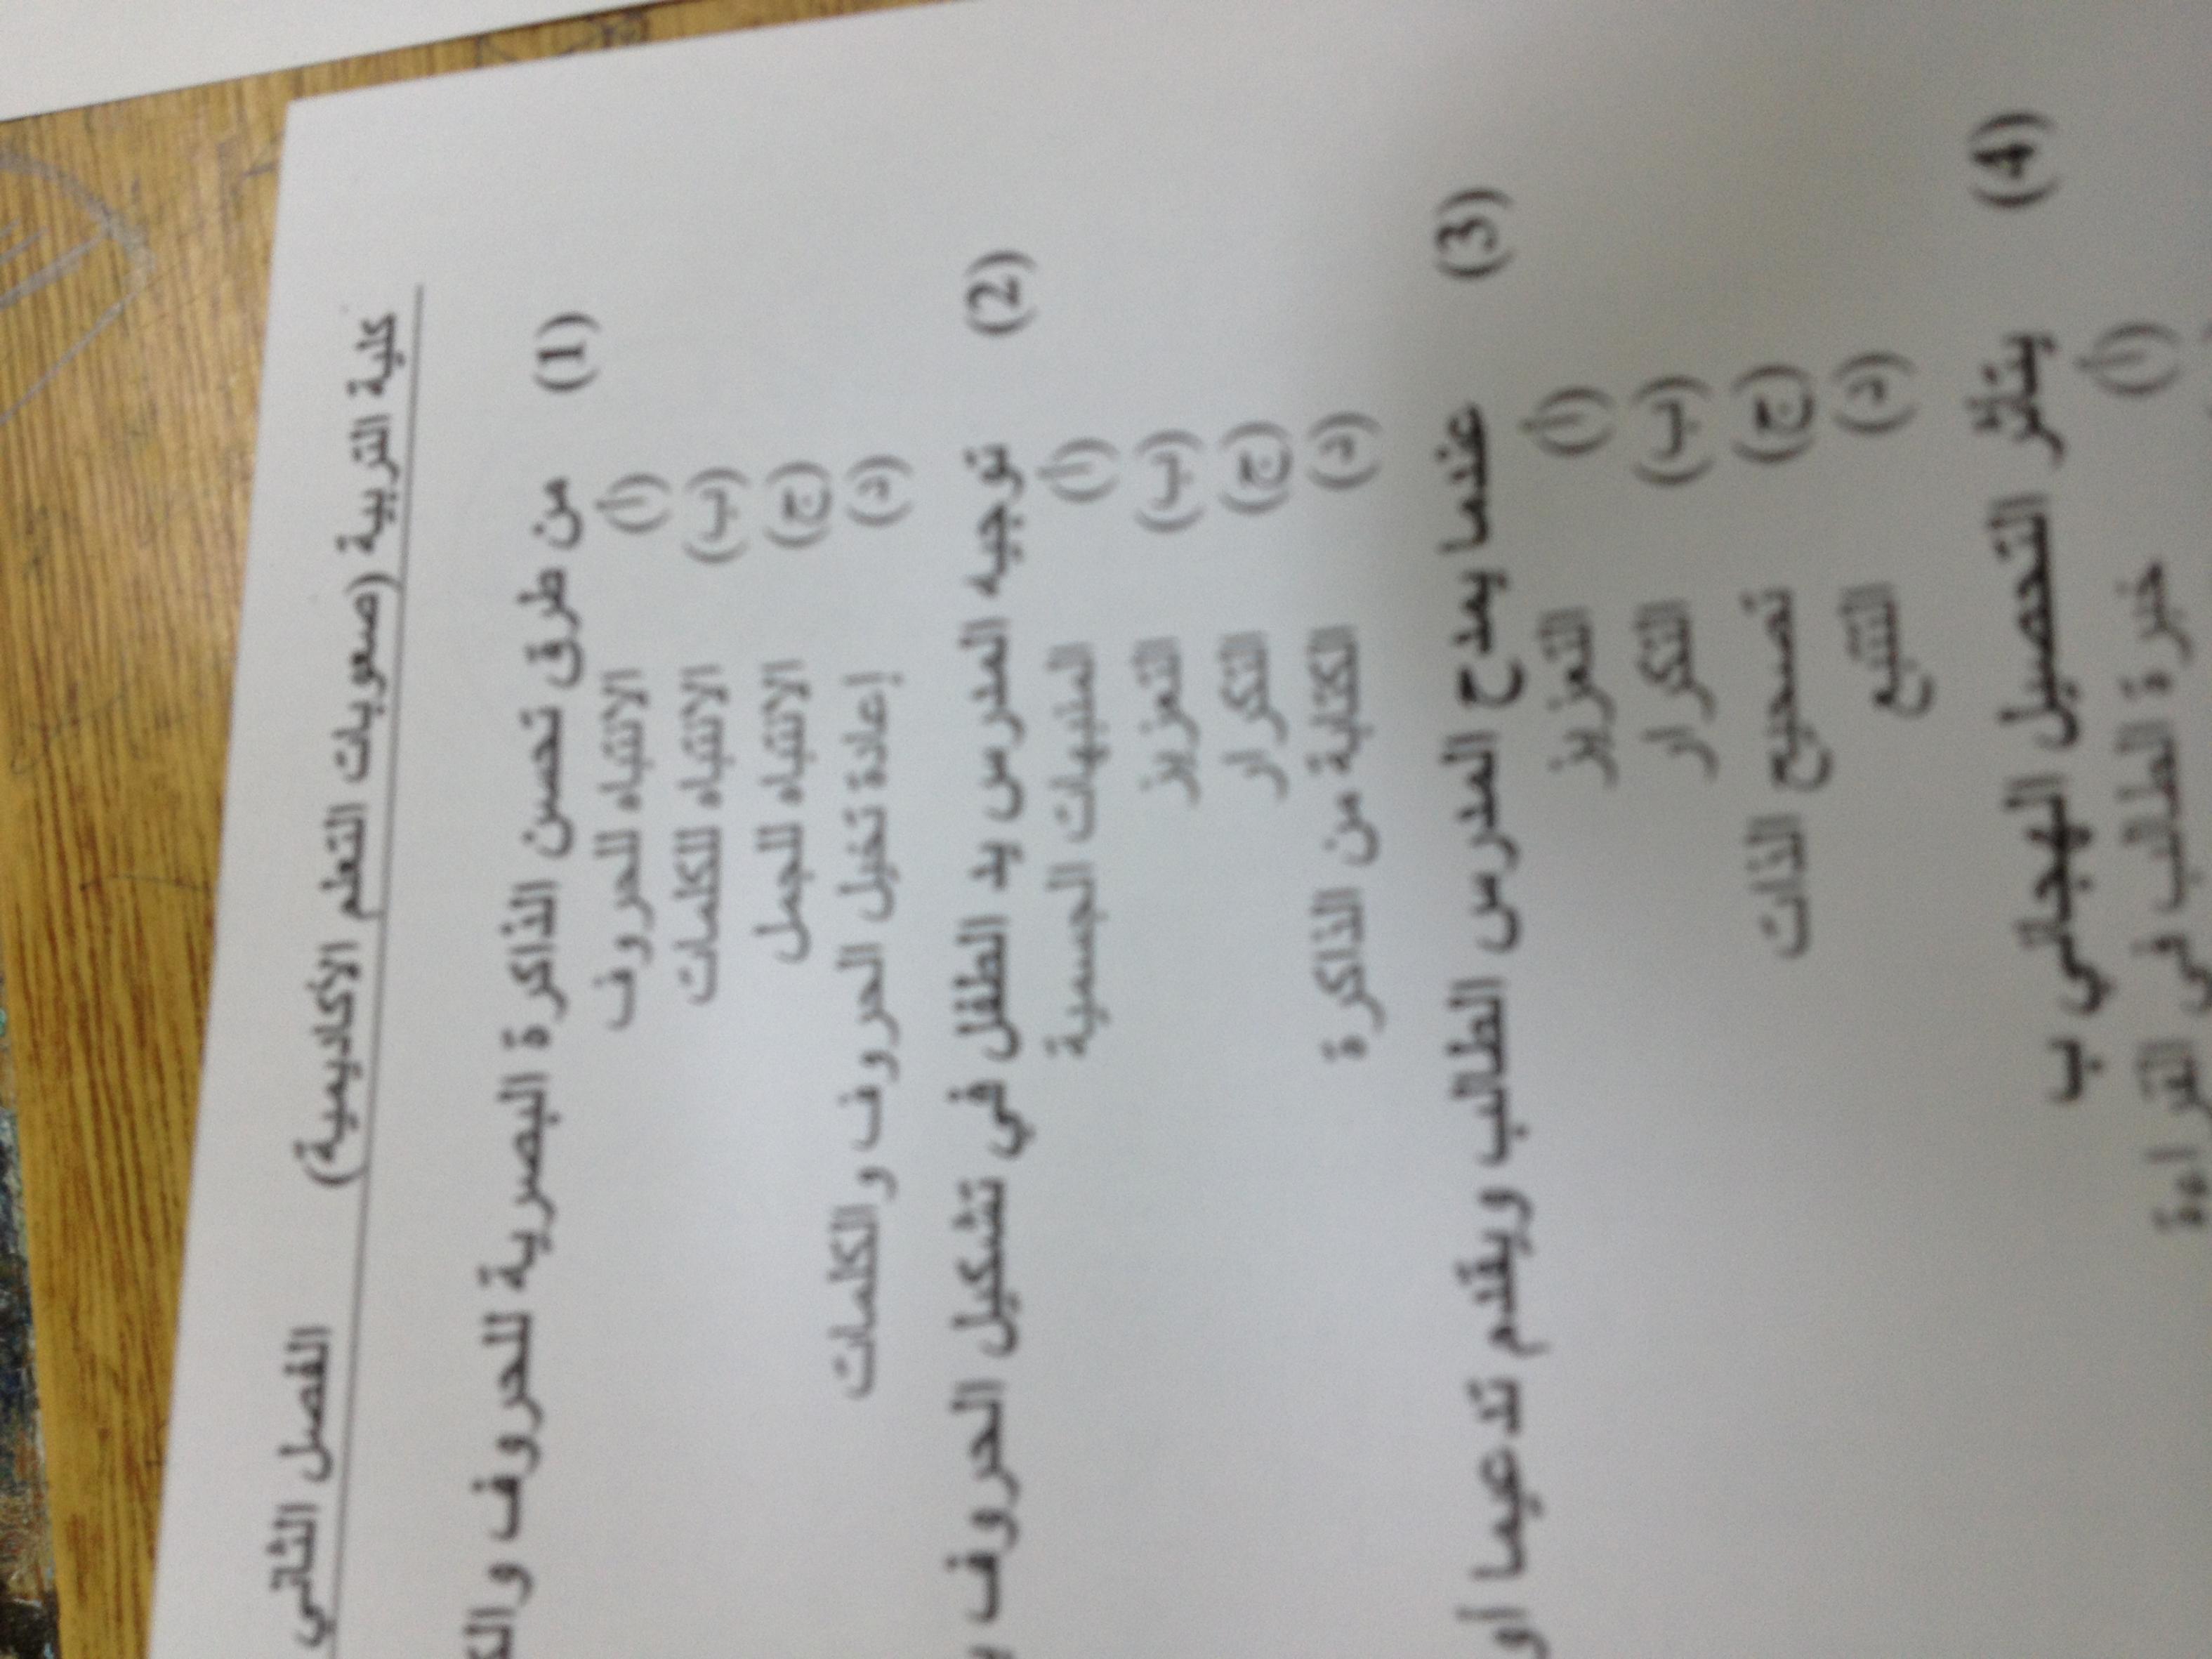 كلية التربية (صعوبات التعلم الأكاديمية) الفصل الثاني
(1) من طرق تحسن الذاكرة البصرية للحروف
(أ) الانتباه للحروف
(ب) الانتباه للكلمات
(ج) الانتباه للجمل
(د) إعادة تخيل الحروف والكلمات
(2) توجيه المدرس يد الطفل في تشكيل الحروف
(أ) المنبهات الجسمية
(ب) التعزيز
(ج) التكرار
(د) الكتابة من الذاكرة
(3) عندما يمدح المدرس الطالب ويقدم تدعيما أو
(أ) التعزيز
(ب) التكرار
(ج) تصحيح الذات
(د) التتبع
(4) يتأثر التحصيل الهجائي ب
(أ) خبرة الطالب في القراءة